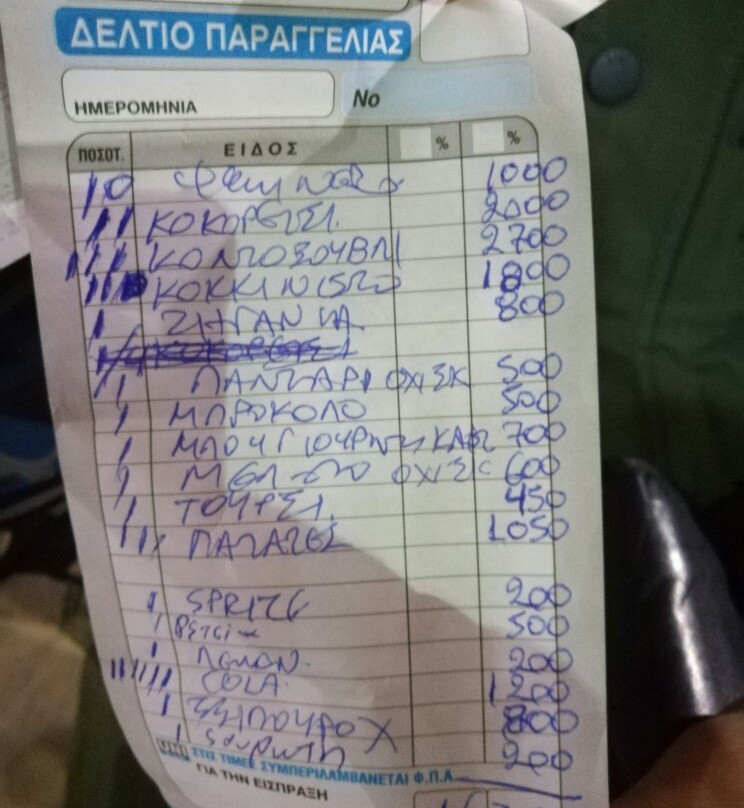 ΔΕΛΤΙΟ ΠΑΡΑΓΓΕΛΙΑΣ
ΗΜΕΡΟΜΗΝΙΑ No
ΠΟΣΟΤ. ΕΙΔΟΣ % %
10 1000
11 ΚΟΚΟΡΕΤΣΙ. 2000
111 ΚΟΝΤΟΣΟΥΒΛΙ 2700
ΚΟΚΚΙΝΙΣΤΟ 1800
1 ΤΗΓΑΝΙΑ 800
1 ΠΑΝΤΖΑΡΙ ΟΧΙ ΣΚ 500
1 ΜΠΡΟΚΟΛΟ 500
1 700
1 ΟΧΙ ΣΚ 600
1 ΤΟΥΡΣΙ. 450
111 ΠΑΤΑΤΕΣ 1050
1 SPRITE 200
1 ρετσι 500
1 ΛΕΜΟΝ. 200
111111 COLA. 1200
1 ΤΣΙΠΟΥΡΟ Χ 800
1 Σουρωτη 200
ΣΤΙΣ ΤΙΜΕΣ ΣΥΜΠΕΡΙΛΑΜΒΑΝΕΤΑΙ Φ.Π.Α.
ΓΙΑ ΤΗΝ ΕΙΣΠΡΑΞΗ